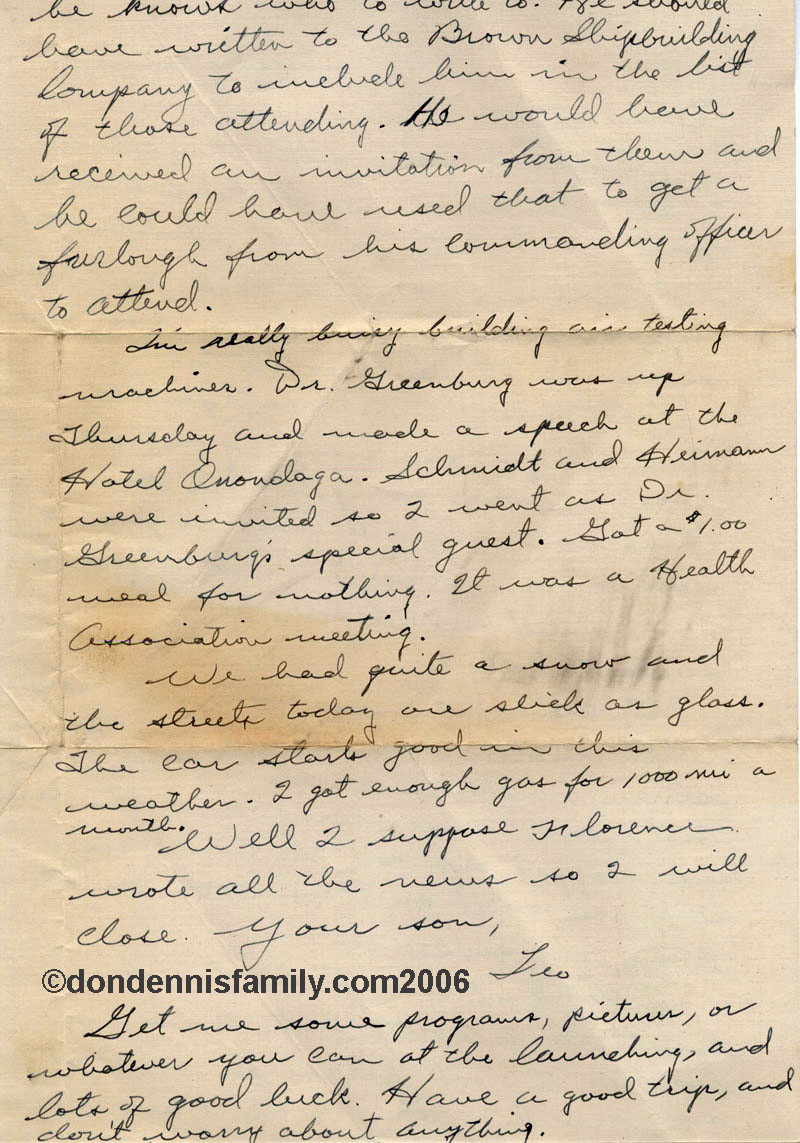 he knows who to write to. He should
have written to the Brown Shipbuilding
Company to include him in the list
of those attending. He would have
received an invitation from them and
he could have used that to get a
furlough from his commanding officer
to attend.
I'm really busy building air testing
machines. Dr. Greenburg was up
Thursday and made a speech at the
Hotel Onondaga. Schmidt and Heimann
were invited so I went as Dr.
Greenburg's special guest. Got a $1.00
meal for nothing. It was a Health
Association meeting.
We had quite a snow and
the streets today are slick as glass.
The car starts good in this
weather. I got enough gas for 1000 mi a
month.
Well I suppose Florence
wrote all the news so I will
close. Your son,
Leo
©dondennisfamily.com2006
Get me some programs, pictures, or
whatever you can at the launching, and
lots of good luck. Have a good trip, and
don't worry about anything.